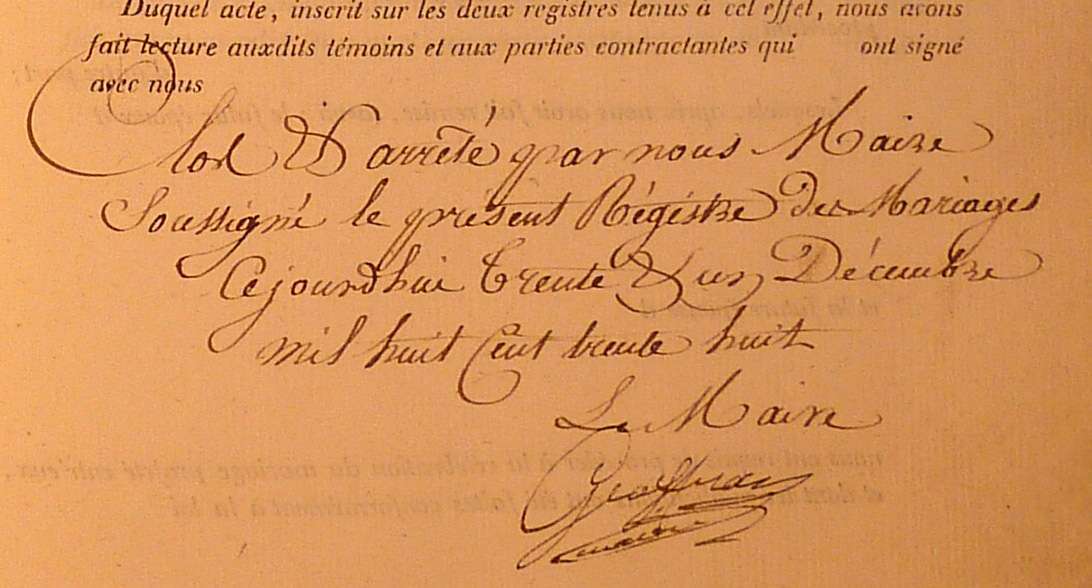 Duquel acte, inscrit sur les deux registres tenus à cet effet, nous avons
fait lecture auxdits témoins et aux parties contractantes qui ont signé
avec nous
Clos & arrêté par nous Maire
Soussigné le présent Régistre des Mariages
Cejourdhui trente & un Décembre
mil huit Cent trente huit
Le Maire